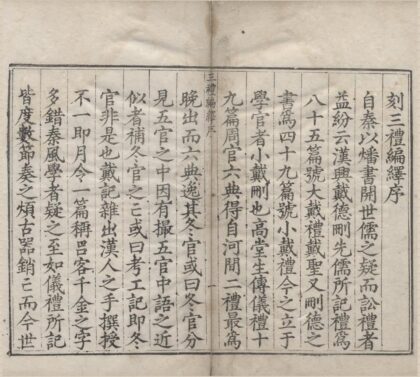 刻三禮編繹序
自秦以燔書開世儒之疑而訟禮者
益紛云漢興戴德刪先儒所記禮爲
八十五篇號大戴禮戴聖又刪德之
書爲四十九篇號小戴禮今之立于
學官者小戴刪也高堂生傳儀禮十
九篇周官六典得自河間二禮最爲
三禮編繹序
晚出而六典逸其冬官或曰冬官分
見五官之中因有撮五官中語之近
似者補冬官之亡或曰考工記即冬
官非是也戴記雜出漢人之手撰授
不一即月令一篇稱呂客千金之字
多錯秦風學者疑之至如儀禮所記
皆度數節奏之煩古器銷亡而今世